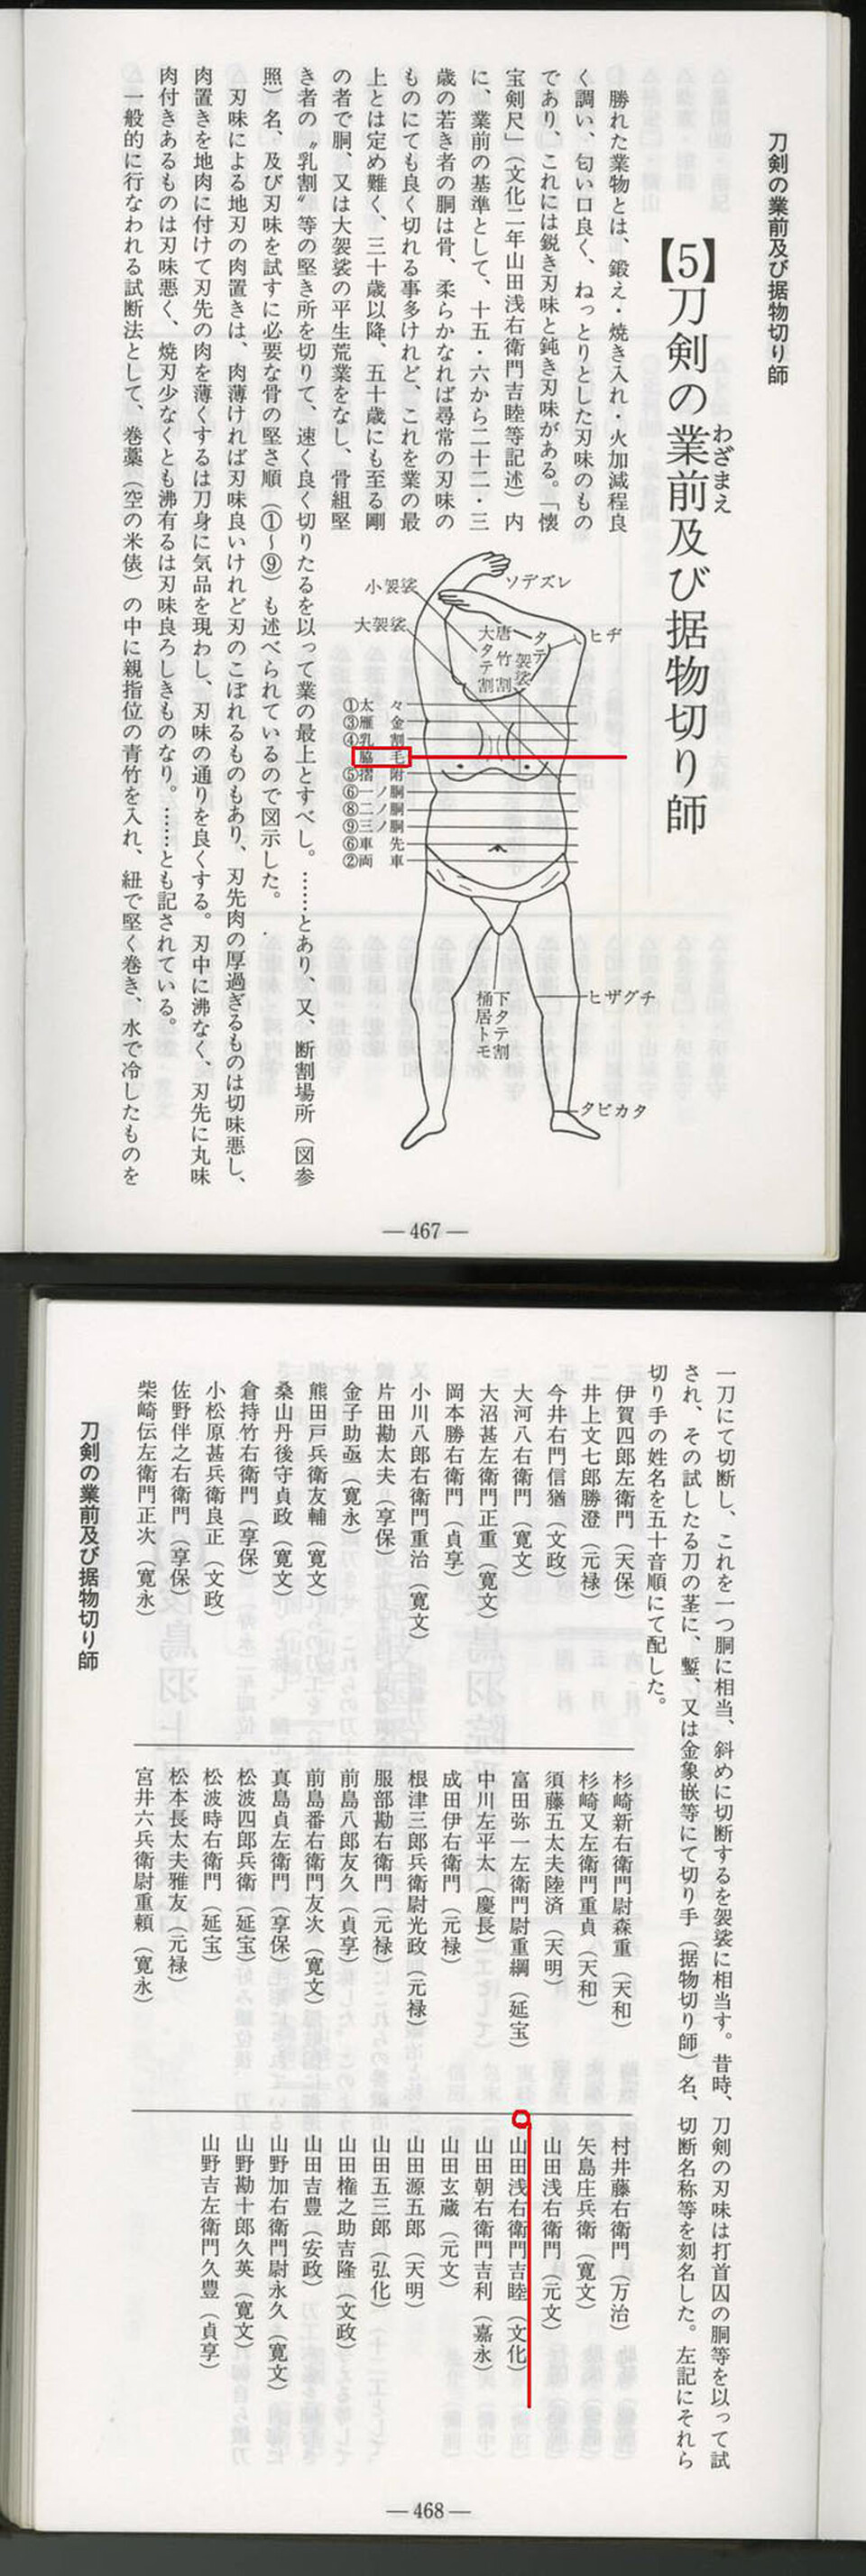 刀剣の業前及び据物切り師
【5】刀剣の業前及び据物切り師
わざまえ
勝れた業物とは、鍛え・焼き入れ・火加減程良
く調い、匂い口良く、ねっとりとした刃味のもの
であり、これには鋭き刃味と鈍き刃味がある。「懐
宝剣尺」（文化二年山田浅右衛門吉睦等記述）内
に、業前の基準として、十五・六から二十二・三
歳の若き者の胴は骨、柔らかなれば尋常の刃味の
ものにても良く切れる事多けれど、これを業の最
上とは定め難く、三十歳以降、五十歳にも至る剛
の者で胴、又は大袈裟の平生荒業をなし、骨組堅
き者の〝乳割〟等の堅き所を切りて、速く良く切りたるを以って業の最上とすべし。……とあり、又、断割場所（図参
照）名、及び刃味を試すに必要な骨の堅さ順（①～⑨）も述べられているので図示した。
刃味による地刃の肉置きは、肉薄ければ刃味良いけれど刃のこぼれるものもあり、刃先肉の厚過ぎるものは切味悪し、
肉置きを地肉に付けて刃先の肉を薄くするは刀身に気品を現わし、刃味の通りを良くする。刃中に沸なく、刃先に丸味
肉付きあるものは刃味悪く、焼刃少なくとも沸有るは刃味良ろしきものなり。……とも記されている。
一般的に行なわれる試断法として、巻藁（空の米俵）の中に親指位の青竹を入れ、紐で堅く巻き、水で冷したものを
ソデズレ
小袈裟
大袈裟
ヒヂ
タテ袈裟
唐竹割
大タテ割
①太々
③雁金
④乳割
脇毛
⑤摺附
⑥一ノ胴
⑧二ノ胴
⑨三ノ胴
⑥車先
②両車
下タテ割
桶居トモ
ヒザグチ
タビカタ
—467—
一刀にて切断し、これを一つ胴に相当、斜めに切断するを袈裟に相当す。昔時、刀剣の刃味は打首囚の胴等を以って試
され、その試したる刀の茎に、鏨、又は金象嵌等にて切り手（据物切り師）名、切断名称等を刻名した。左記にそれら
切り手の姓名を五十音順にて配した。
伊賀四郎左衛門（天保）
井上文七郎勝澄（元禄）
今井右門信猶（文政）
大河八右衛門（寛文）
大沼甚左衛門正重（寛文）
岡本勝右衛門（貞享）
小川八郎右衛門重治（寛文）
片田勘太夫（享保）
金子助亟（寛永）
熊田戸兵衛友輔（寛文）
桑山丹後守貞政（寛文）
倉持竹右衛門（享保）
小松原甚兵衛良正（文政）
佐野伴之右衛門（享保）
柴崎伝左衛門正次（寛永）
杉崎新右衛門尉森重（天和）
杉崎又左衛門重貞（天和）
須藤五太夫陸済（天明）
富田弥一左衛門尉重綱（延宝）
中川左平太（慶長）
成田伊右衛門（元禄）
根津三郎兵衛尉光政（元禄）
服部勘右衛門（元禄）
前島八郎友久（貞享）
前島番右衛門友次（寛文）
真島貞左衛門（享保）
松波四郎兵衛（延宝）
松波時右衛門（延宝）
松本長太夫雅友（元禄）
宮井六兵衛尉重頼（寛永）
村井藤右衛門（万治）
矢島庄兵衛（寛文）
山田浅右衛門（元文）
山田浅右衛門吉睦（文化）
山田朝右衛門吉利（嘉永）
山田玄蔵（元文）
山田源五郎（天明）
山田五三郎（弘化）
山田権之助吉隆（文政）
山田吉豊（安政）
山野加右衛門尉永久（寛文）
山野勘十郎久英（寛文）
山野吉左衛門久豊（貞享）
刀剣の業前及び据物切り師
—468—